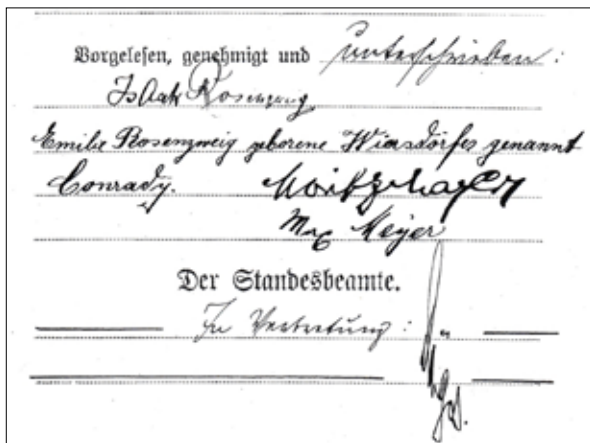 Vorgelesen, genehmigt und unterschrieben:
Isaak Rosenzweig
Emilie Rosenzweig geborene Wiasdörfer genannt
Conrady. Moritz Mayer
Max Meyer
Der Standesbeamte.
In Vertretung: